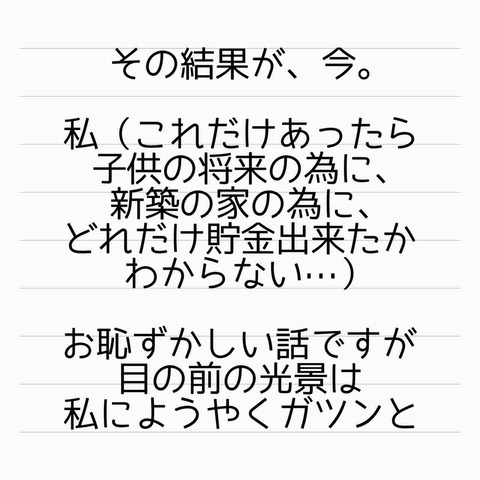 その結果が、今。
私（これだけあったら
子供の将来の為に、
新築の家の為に、
どれだけ貯金出来たか
わからない…）
お恥ずかしい話ですが
目の前の光景は
私にようやくガツンと